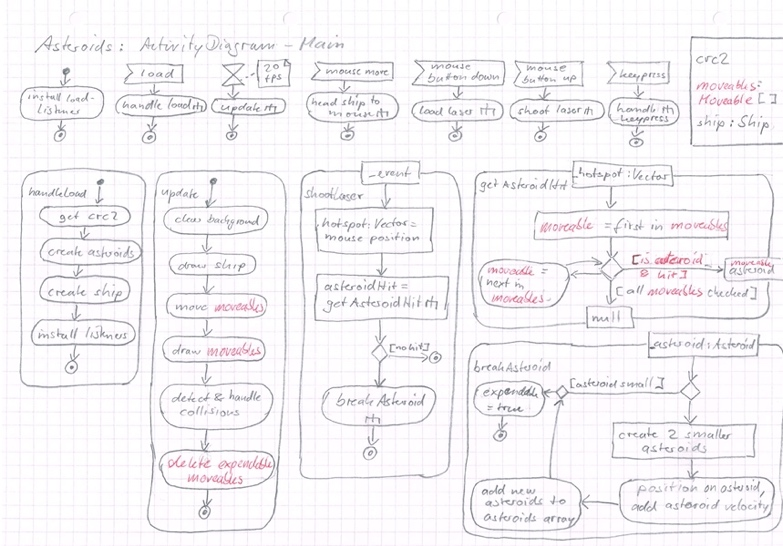 Asteroids: ActivityDiagram - Main
install load-
listener
load
handle load
20
fps
update
mouse move
head ship to
mouse
mouse
button down
load laser
mouse
button up
shoot laser
keypress
handle
keypress
crc2
moveables:
Moveable []
ship: Ship
handleLoad
get crc2
create asteroids
create ship
install listners
update
clear background
draw ship
move moveables
draw moveables
detect & handle
collisions
delete expendable
moveables
_event
shootLaser
hotspot: Vector =
mouse position
asteroidHit =
getAsteroidHit
[no hit]
breakAsteroid
_hotspot: Vector
getAsteroidHit
moveable = first in moveables
moveable =
next in
moveables
[is asteroid
& hit]
moveable
asteroid
[all moveables checked]
null
_asteroid: Asteroid
breakAsteroid
[asteroid small]
expendable
= true
create 2 smaller
asteroids
position on asteroid,
add asteroid velocity
add new
asteroids to
asteroids array